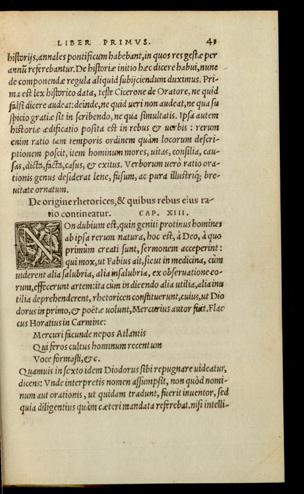 LIBER PRIMVS. 43
historijs, annales pontificum habebant, in quos res gestæ per
annũ referebantur. De historiæ initio hæc dicere habui, nunc
de componendæ regula aliquid subijciendum duximus. Pri-
ma est lex historico data, teste Cicerone de Oratore, ne quid
falsi dicere audeat: deinde, ne quid ueri non audeat, ne qua su
spicio gratiæ sit in scribendo, ne qua simultatis. Ipsa autem
historiæ ædificatio posita est in rebus & uerbis: rerum
enim ratio tam temporis ordinem quàm locorum descri-
ptionem poscit, item hominum mores, uitas, consilia, cau-
sas, dicta, facta, casus, & exitus. Verborum uerò ratio ora-
tionis genus desiderat lene, fusum, ac pura illustriq́; bre-
uitate ornatum.
De origine rhetorices, & quibus rebus eius ra-
tio contineatur. CAP. XIII.
NOn dubium est, quin geniti protinus homines
ab ipsa rerum natura, hoc est, à Deo, à quo
primùm creati sunt, sermonem acceperint:
qui mox, ut Fabius ait, sicut in medicina, cùm
uiderent alia salubria, alia insalubria, ex obseruatione eo-
rum, effecerunt artem: ita cùm in dicendo alia utilia, alia inu
tilia deprehenderent, rhetoricen constituerunt, cuius, ut Dio
dorus in primo, & poëtæ uolunt, Mercurius autor fuit. Flac
cus Horatius in Carmine:
Mercuri facunde nepos Atlantis
Qui feros cultus hominum recentum
Voce formasti, &c.
Quamuis in sexto idem Diodorus sibi repugnare uideatur,
dicens: Vnde interpretis nomen assumpsit, non quòd nomi-
num aut orationis, ut quidam tradunt, fuerit inuentor, sed
quia diligentius quàm cæteri mandata referebat. nisi intelli-